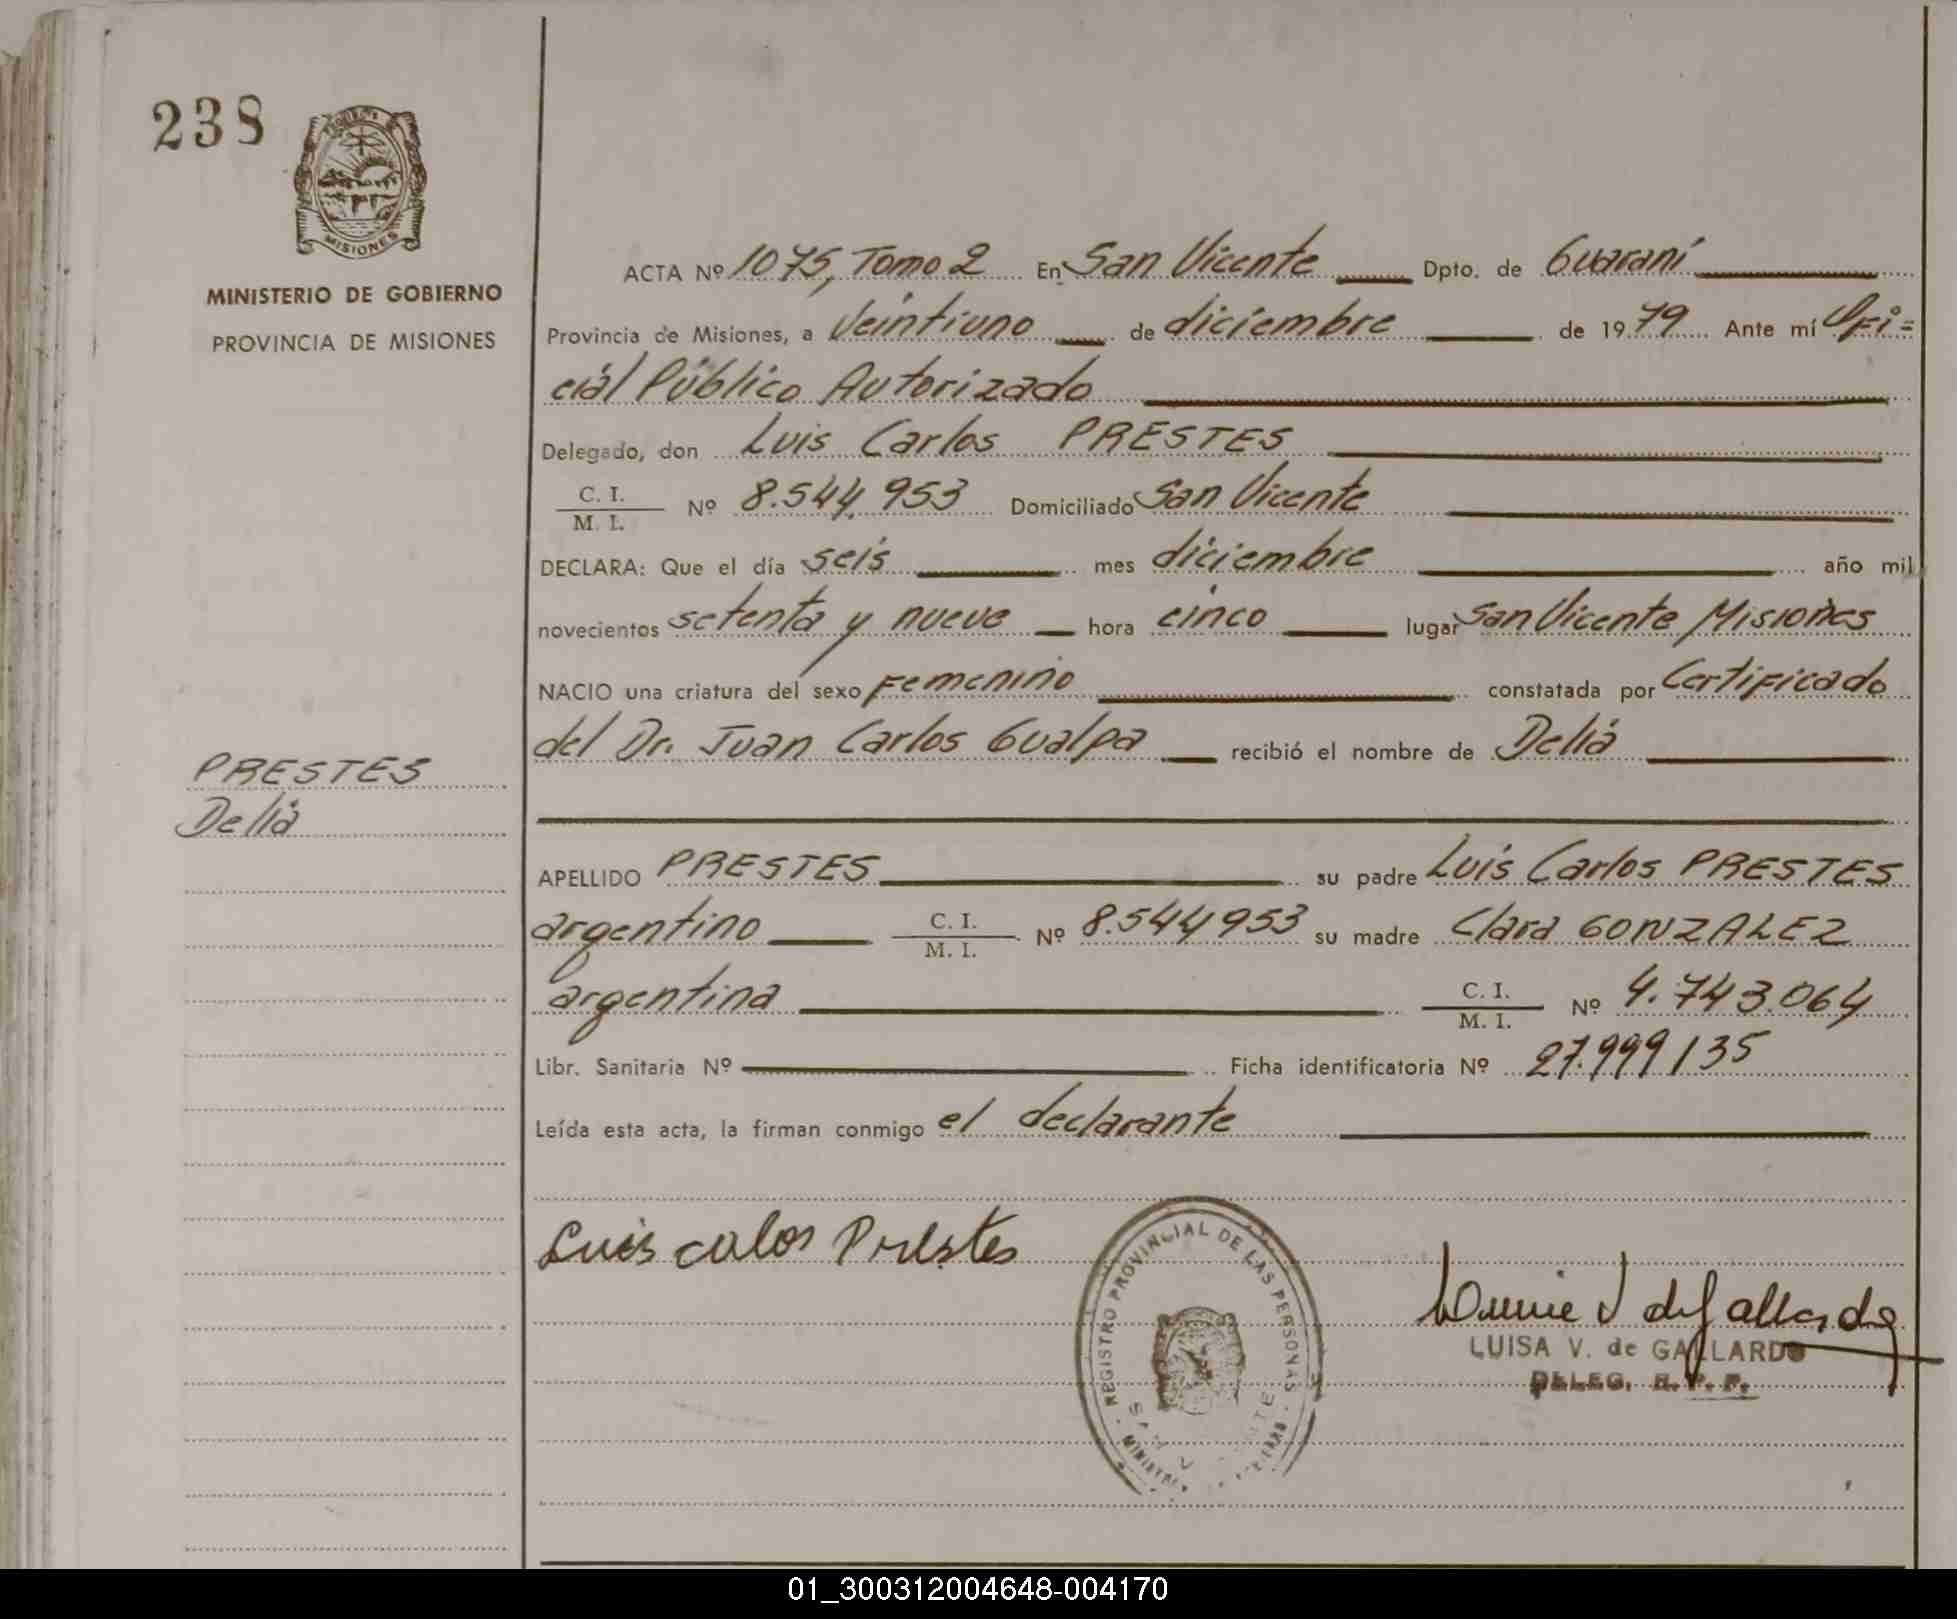 238
MISIONES
MINISTERIO DE GOBIERNO
PROVINCIA DE MISIONES
PRESTES
Delia
ACTA Nº 1075, Tomo 2 En San Vicente Dpto. de Guaraní
Provincia de Misiones, a Veintiuno de diciembre de 1979 Ante mí Ofi=
cial Público Autorizado
Delegado, don Luis Carlos PRESTES
C. I. / M. I. Nº 8.544.953 Domiciliado San Vicente
DECLARA: Que el día seis mes diciembre año mil
novecientos setenta y nueve hora cinco lugar San Vicente Misiones
NACIO una criatura del sexo Femenino constatada por Certificado
del Dr. Juan Carlos Gualpa recibió el nombre de Delia
APELLIDO PRESTES su padre Luis Carlos PRESTES
argentino C. I. / M. I. Nº 8.544953 su madre Clara GONZALEZ
argentina C. I. / M. I. Nº 4.743.064
Libr. Sanitaria Nº Ficha identificatoria Nº 27.999135
Leída esta acta, la firman conmigo el declarante
Luis calos Prestes
REGISTRO PROVINCIAL DE LAS PERSONAS
LUISA V. de GALLARDO
DELEG. R. P. P.
01_300312004648-004170